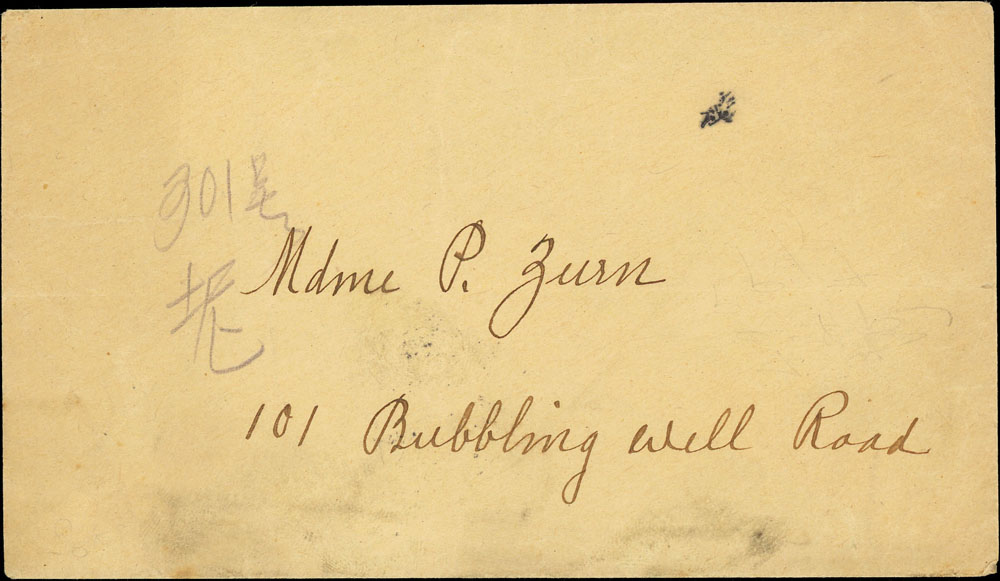 301号
Mdme P. Zurn
101 Bubbling well Road